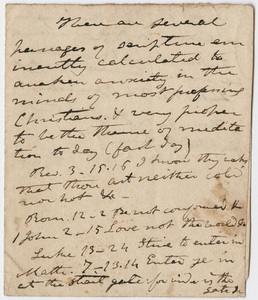 There are several
passages of scripture em
inently calculated to
awaken anxiety in the
minds of most professing
Christians. & very proper
to be the theme of medita
tion to day (fast day)
Rev. 3-15.16 I know thy works
that thou art neither cold
nor hot &c
Rom. 12-2 Be not conformed &c
1 John 2-15 Love not the world &c
Luke 13-24 Strive to enter in
Matt. 7-13.14 Enter ye in
at the strait gate for wide is the
gate &c